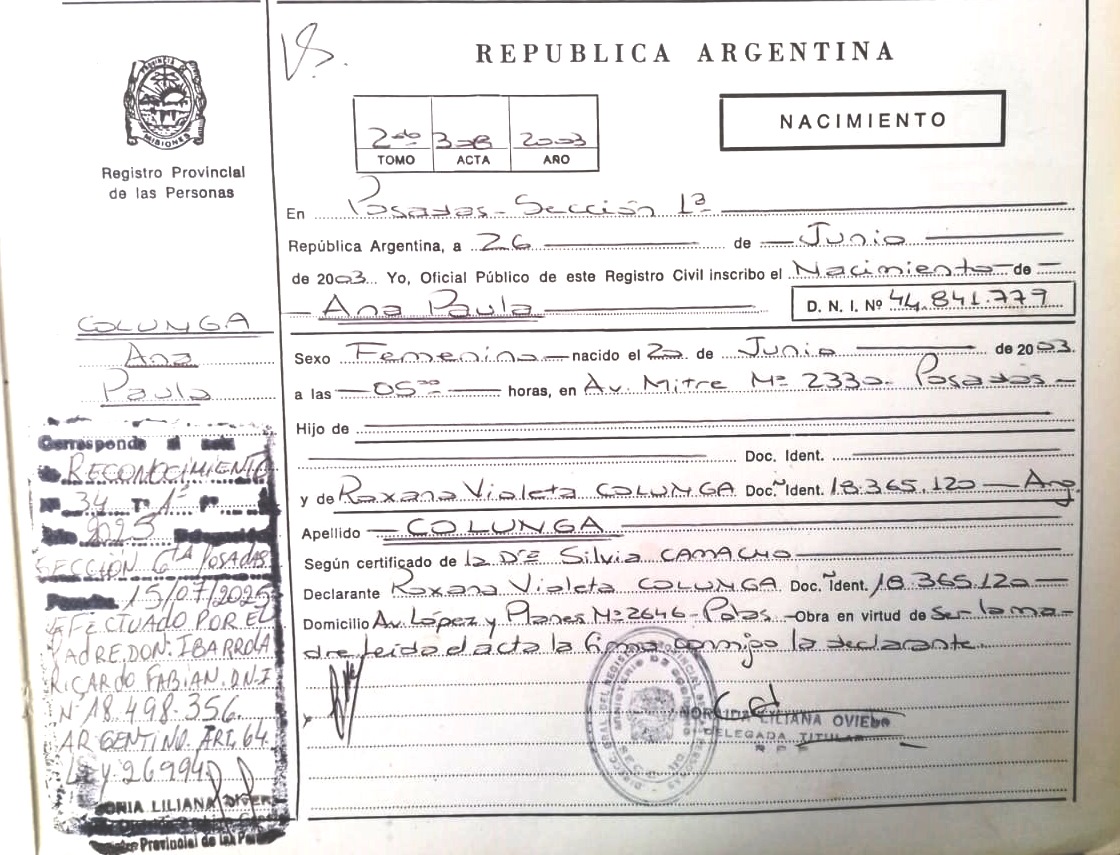 V.S.
REPUBLICA ARGENTINA
PROVINCIA DE MISIONES
Registro Provincial
de las Personas
2do 308 2003
TOMO ACTA AÑO
NACIMIENTO
En Posadas - Sección 1ª
República Argentina, a 26 de Junio
de 2003. Yo, Oficial Público de este Registro Civil inscribo el Nacimiento de
Ana Paula D. N. I. Nº 44.841.779
Sexo Femenino nacido el 20 de Junio de 2003.
a las 05 horas, en Av. Mitre Nº 2330- Posadas
Hijo de
Doc. Ident.
y de Roxana Violeta COLUNGA Doc. Ident. 18.365.120 - Arg
Apellido COLUNGA
Según certificado de la Dra Silvia CAMACHO
Declarante Roxana Violeta COLUNGA Doc. Ident. 18.365.120
Domicilio Av. López y Planes Nº 2646 - Pdas - Obra en virtud de ser la ma-
dre leída el acta la firma conmigo la declarante.
LILIANA OVIEDO
DELEGADA TITULAR
COLUNGA
Ana
Paula
Corresponde al acta
de RECONOCIMIENTO
Nº 34 Tº 1º Fº
Año 2025 Delegación
SECCIÓN 6TA POSADAS
Posadas, 15/07/2025
EFECTUADO POR EL
PADRE DON: IBARROLA
RICARDO FABIAN. D.N.I
Nº 18.498.356.
ARGENTINO. ART. 64.
LEY 26994
SONIA LILIANA
Registro Provincial de las Personas